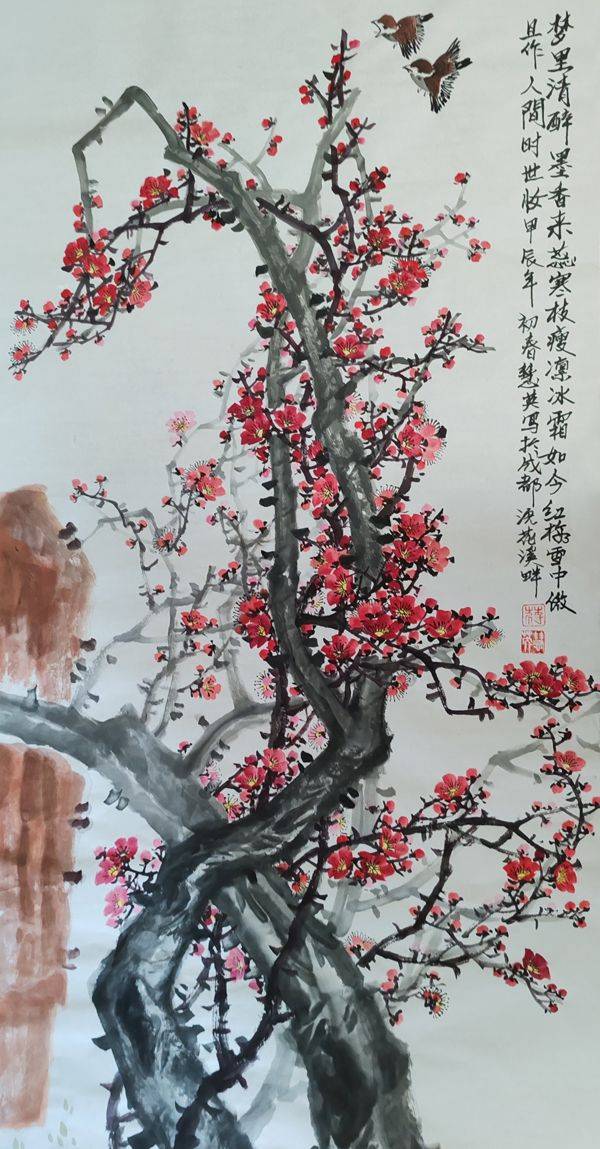 梦里清醉墨香来蕊寒枝瘦凛冰霜如今红梅雪中傲
且作人間时世妆甲辰年初春慧英写於成都浣花溪畔